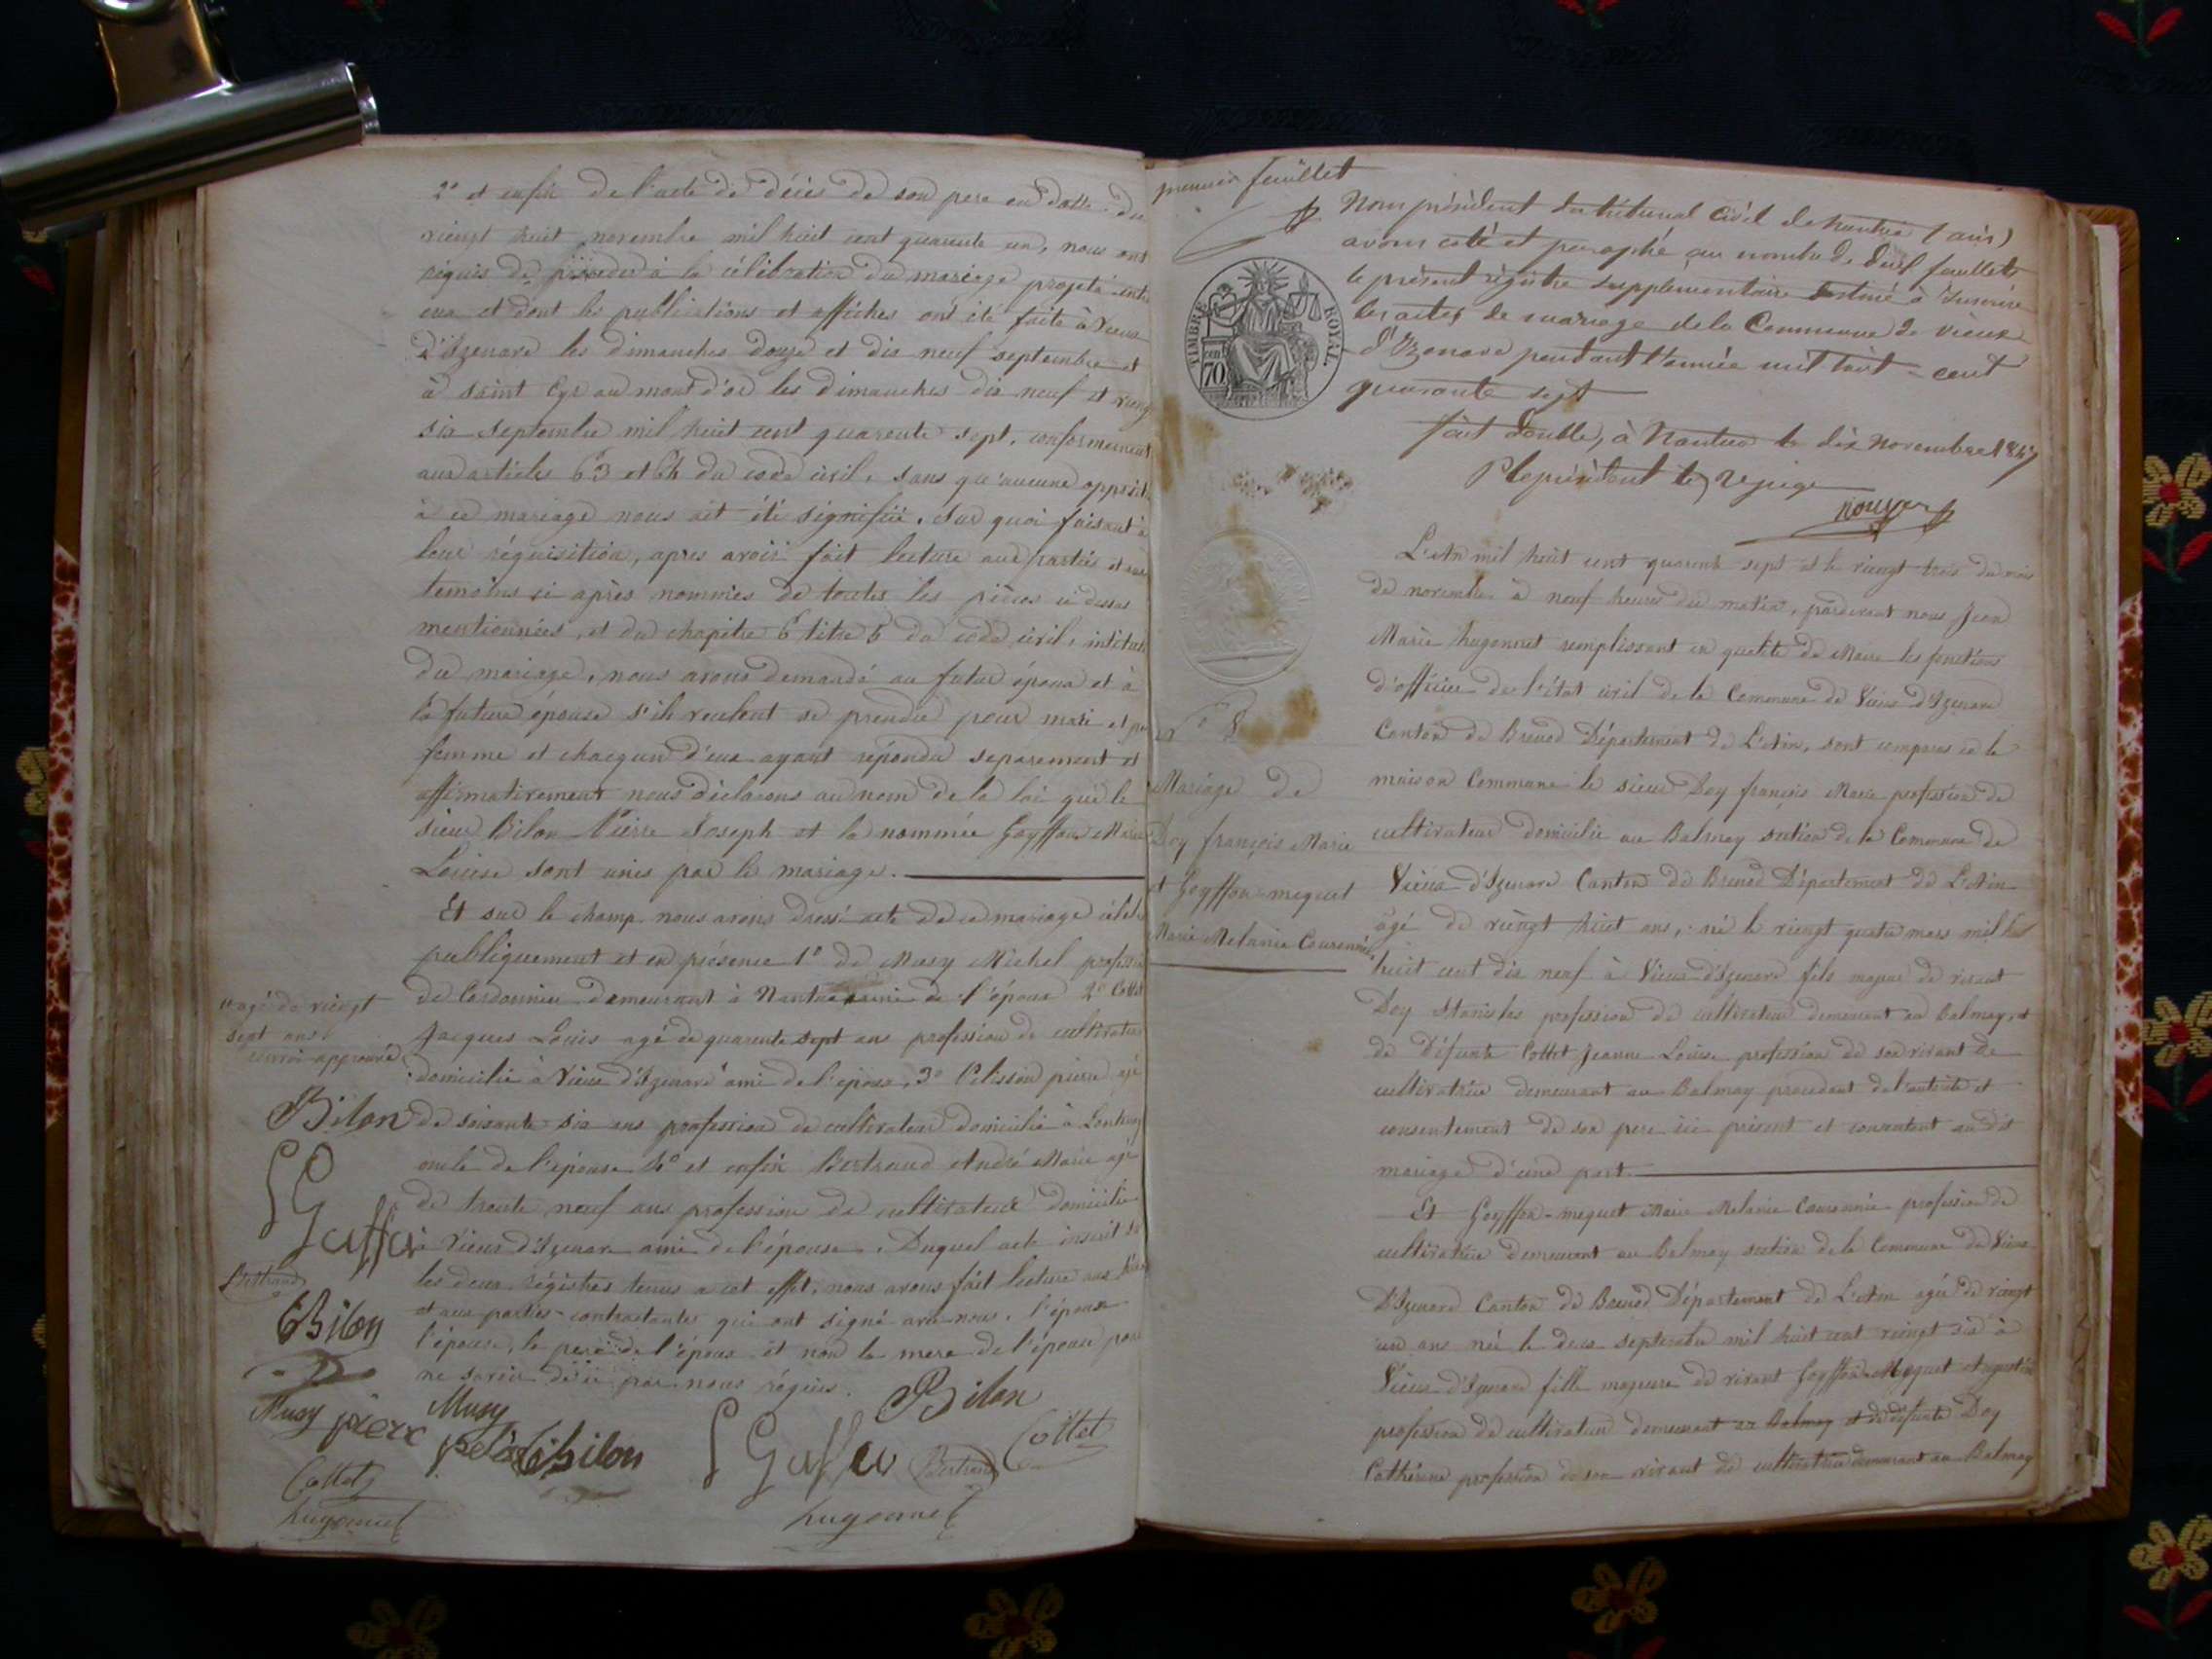 2° et enfin de l'acte de décès de son pere en datte du
viengt huit novembre mil huit cent quarente un, nous ont
réquis de procéder à la célébration du mariage projeté entre
eux et dont les publications et affiches ont été faite à Vieux
d'Izenave les dimanches douze et dix neuf septembre et
à saint Cyr au mont d'or les dimanches dix neuf et vieng
six septembre mil huit cent quarente sept, conformement
aux articles 63 et 64 du code civil, sans qu'aucune opposit
à ce mariage nous ait été signifiée. Sur quoi faisant à
leur réquisition, apres avoir fait lecture aux parties et aux
temoins ci après nommés de toutes les pièces ci dessus
mentionnées, et du chapitre 6 titre 5 du code civil, intitulé
du mariage, nous avons demandé au futur époux et à
la future épouse s'ils veulent se prendre pour mari et pour
femme et chacqun d'eux ayant répondu séparement et
affirmativement nous déclarons au nom de la loi que le
sieur Bilon Pierre Joseph et la nommée Goyffon Marie
Louise sont unis par le mariage.
Et sur le champ nous avons dressé acte de ce mariage célebr
publiquement et en présence 1° de Musy Michel profession
de Cordonnier demeurant à Nantua ami de l'époux 2° Collet
Jacques Louis agé de quarente sept ans profession de cultivateur
domicilié à Vieux d'Izenave ami de l'époux, 3° Pelisson pierre agé
de soixante six ans profession de cultivateur domicilié à
oncle de l'épouse 4° et enfin Bertrand André Marie agé
de trente neuf ans profession de cultivateur domicilié
à Vieux d'Izenave ami de l'épouse. Duquel acte inscrit sur
les deux régistres tenus a cet effet, nous avons fait lecture aux
et aux parties contractantes qui ont signé avec nous, l'époux
l'épouse, le pere de l'époux et non la mere de l'épouse pour
ne savoir de ce par nous réquis.
agé de viengt
sept ans
renvoi approuvé
Bilon
Bertrand
Bilon
Musy
pierre
Collet
hugonnet
Musy
Bilon
Bilon
Bertrand
Collet
hugonnet
premier feuillet
Nous président du tribunal civil de Nantua (ain)
avons coté et paraphé au nombre de deux feuillets
le présent régistre supplémentaire destiné à Inscrire
les actes de mariage de la Commune de vieux
d'Izenave pendant l'année mil huit cent
quarante sept
fait double, à Nantua le dix novembre 1847
TIMBRE ROYAL
70 cent
N° 8
Mariage de
Doy françois Marie
et Goyffon-mequet
Marie Melanie Couronnée
L'an mil huit cent quarente sept et le viengt trois du mois
de novembre à neuf heures du matin, pardevant nous Jean
Marie hugonnet remplissant en qualité de Maire les fonctions
d'officier de l'état civil de la Commune de Vieux d'Izenave
Canton de Brenod Département de L'Ain, sont comparus en la
maison Commune le sieur Doy françois Marie profession de
cultivateur domicilié au Balmay section de la Commune de
Vieux d'Izenave Canton de Brenod Département de L'Ain
agé de viengt huit ans, né le viengt quatre mars mil huit
huit cent dix neuf à Vieux d'Izenave fils majeur de vivant
Doy Stanislas profession de cultivateur demeurant au Balmay, et
de défunte Collet Jeanne Louise profession de son vivant de
cultivatrice demeurant au Balmay procedant de l'autorité et
consentement de son pere ici présent et consentant au dit
mariage d'une part.
Et Goyffon-mequet Marie Melanie Couronnée profession de
cultivatrice demeurant au Balmay section de la Commune de Vieux
d'Izenave Canton de Brenod Département de L'Ain agée de viengt
un ans née le deux septembre mil huit cent viengt six à
Vieux d'Izenave fille majeure de vivant Goyffon-Mequet
profession de cultivateur demeurant au Balmay et de défunte Doy
Cathérine profession de son vivant de cultivatrice demeurant au Balmay